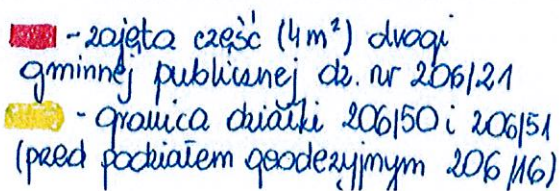 - zajęta część (4m²) drogi
gminnej publicznej dz. nr 206/21
- granica działki 206/50 i 206/51
(przed podziałem geodezyjnym 206/16)